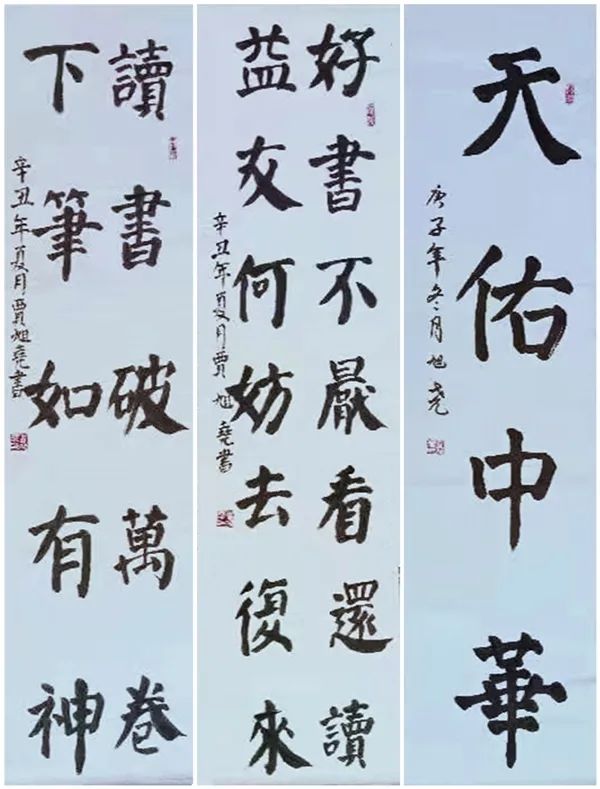 讀書破萬卷
下筆如有神
辛丑年夏月賈旭堯書
好書不厭看還讀
益友何妨去復來
辛丑年夏月賈旭堯書
天佑中華
庚子年冬月旭堯